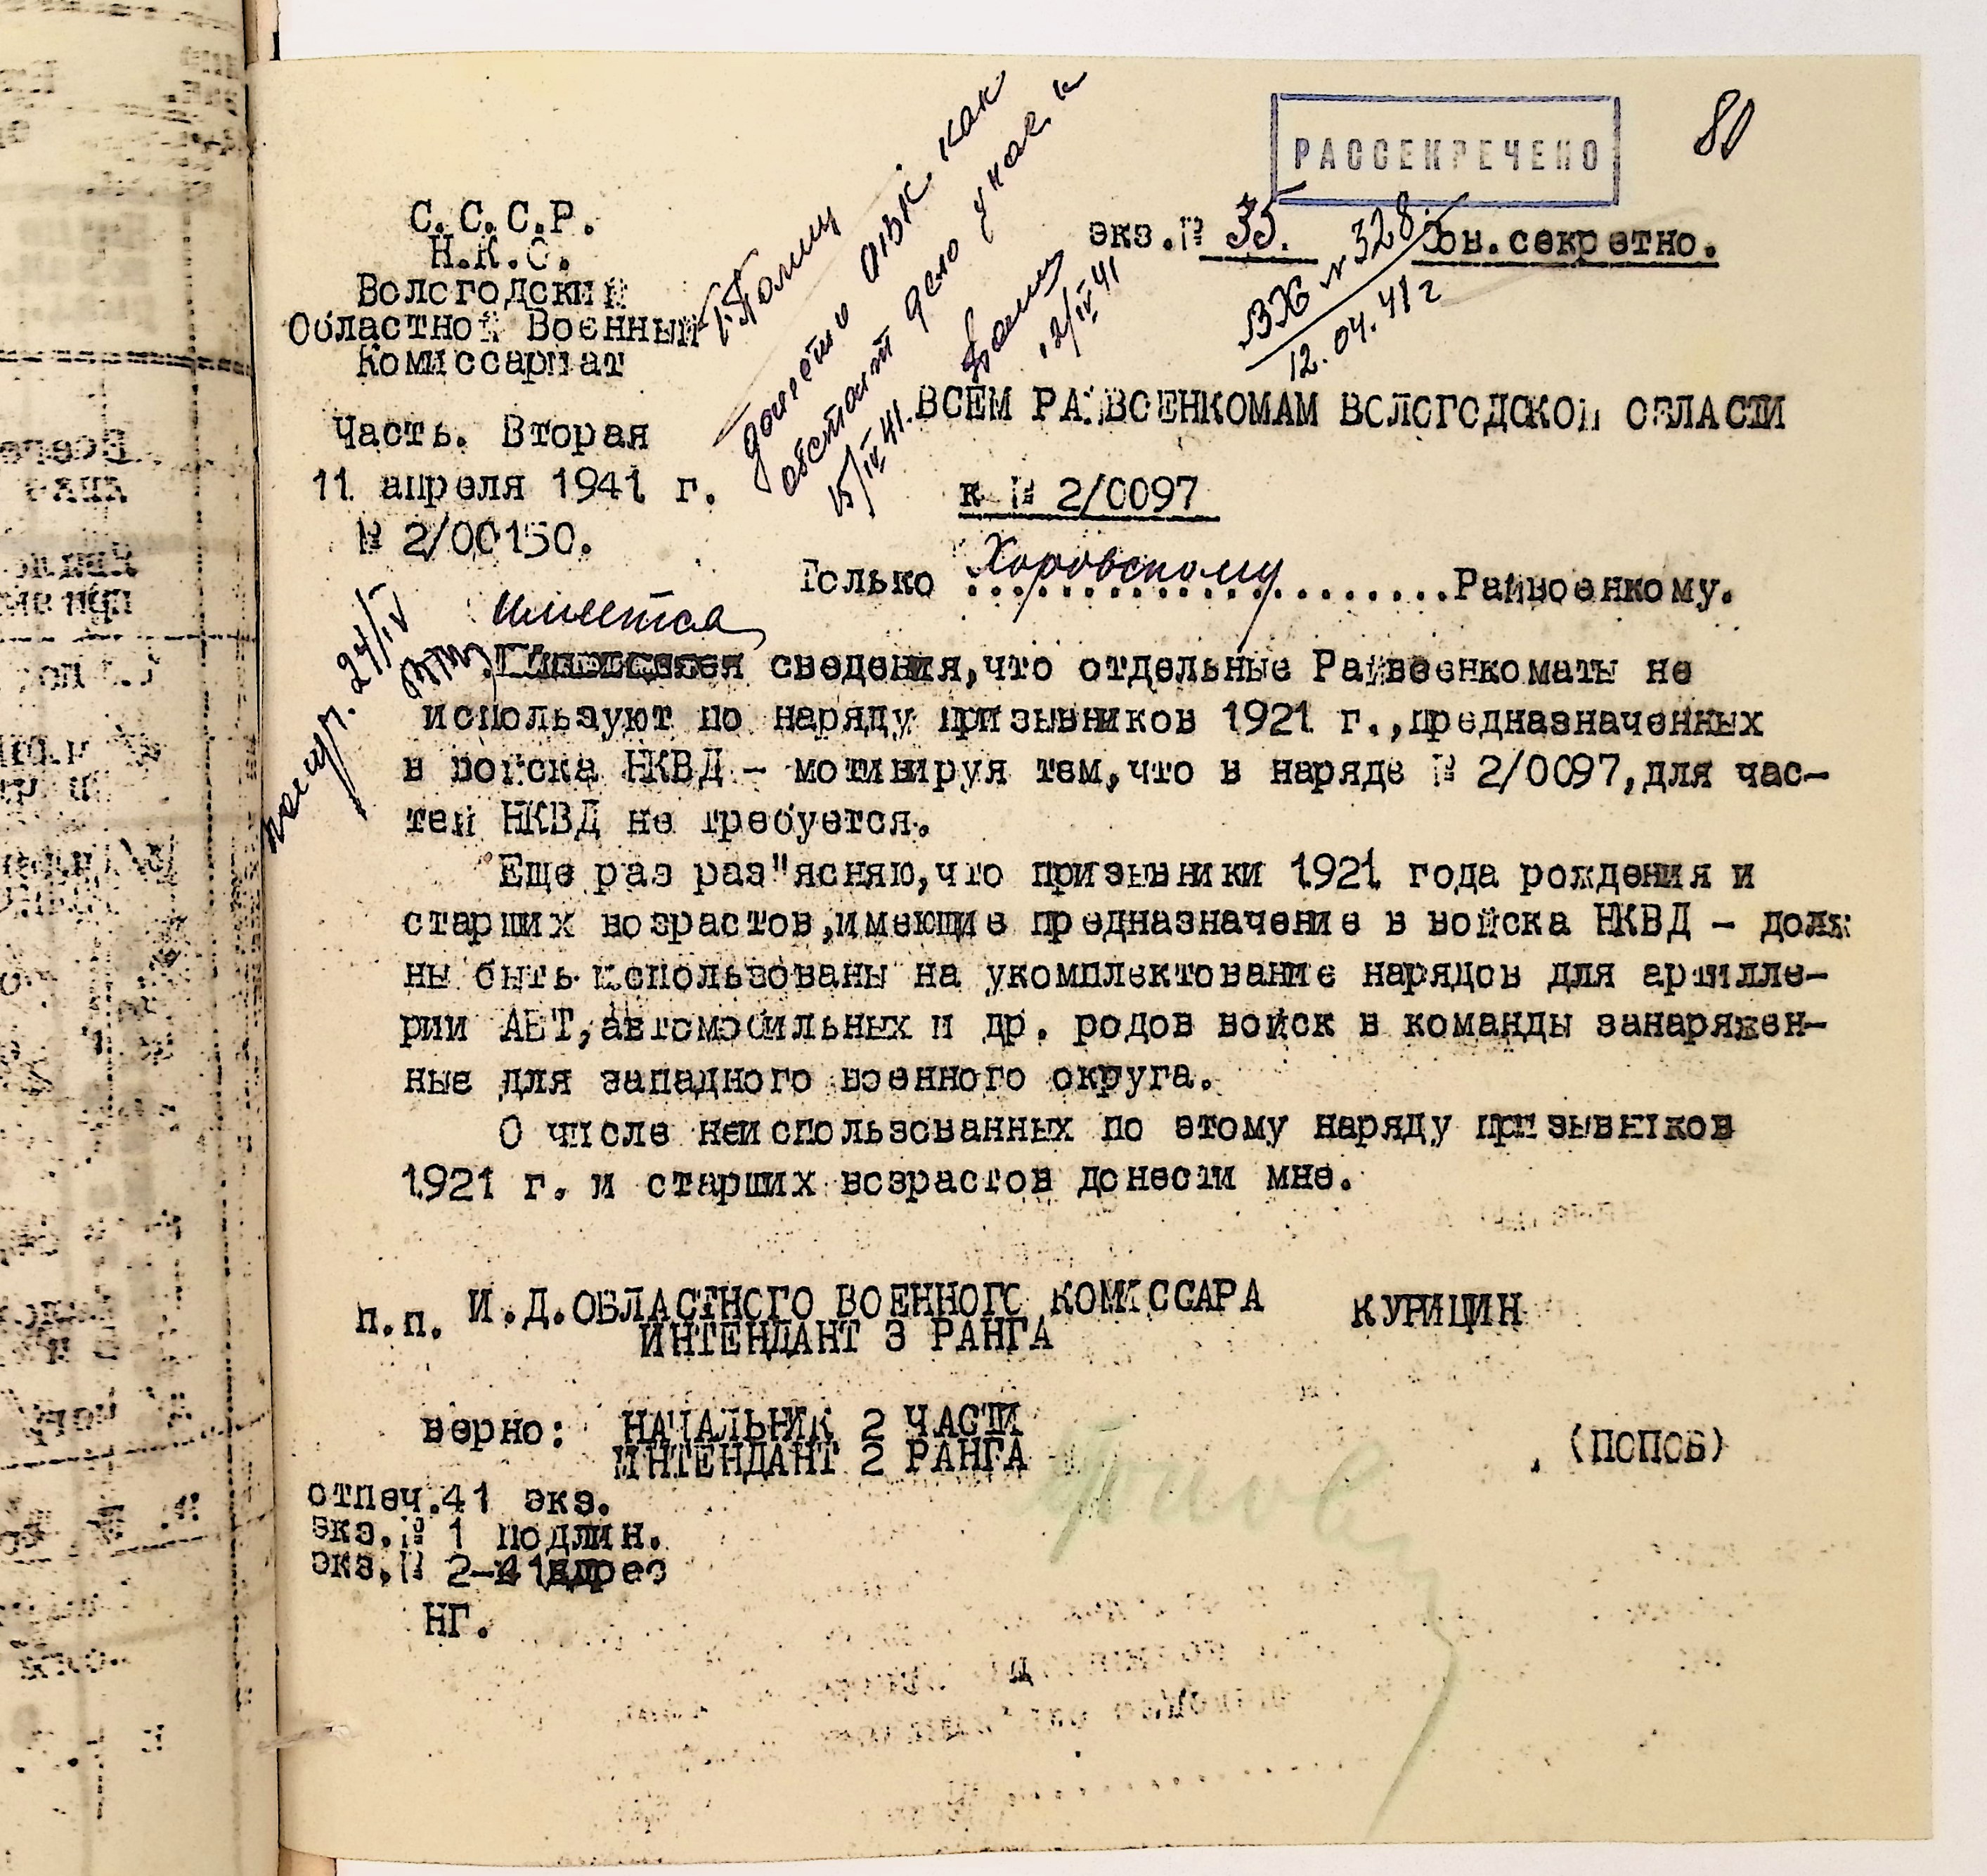 РАССЕКРЕЧЕНО
80
С.С.С.Р.
Н.К.О.
Вологодский
Областной Военный
Комиссариат
экз.№ 35. сов.секретно.
ВХ № 328
12.04.41г
Часть. Вторая
11 апреля 1941 г.
№ 2/00150.
как
дело
12/IV 41
15/IV 41.
ВСЕМ РАЙВОЕНКОМАМ ВОЛОГОДСКОЙ ОБЛАСТИ
к № 2/0097
Только Харовскому..........Райвоенкому.
24/IV
Имеются
сведения,что отдельные Райвоенкоматы не
используют по наряду призывников 1921 г.,предназначенных
в войска НКВД – мотивируя тем,что в наряде № 2/0097,для час–
тей НКВД не требуется.
Еще раз раз"ясняю,что призывники 1921 года рождения и
старших возрастов,имеющие предназначение в войска НКВД – долж
ны быть использованы на укомплектование нарядов для артилле–
рии АБТ,автомобильных и др. родов войск в команды занаряжен–
ные для западного военного округа.
О числе неиспользованных по этому наряду призывников
1921 г. и старших возрастов донести мне.
п.п. И.Д.ОБЛАСТНОГО ВОЕННОГО КОМИССАРА КУРИЦИН
ИНТЕНДАНТ 3 РАНГА
верно: НАЧАЛЬНИК 2 ЧАСТИ
ИНТЕНДАНТ 2 РАНГА (ПОПОВ)
отпеч.41 экз.
экз.№ 1 подлин.
экз.№ 2–41адрес
НГ.